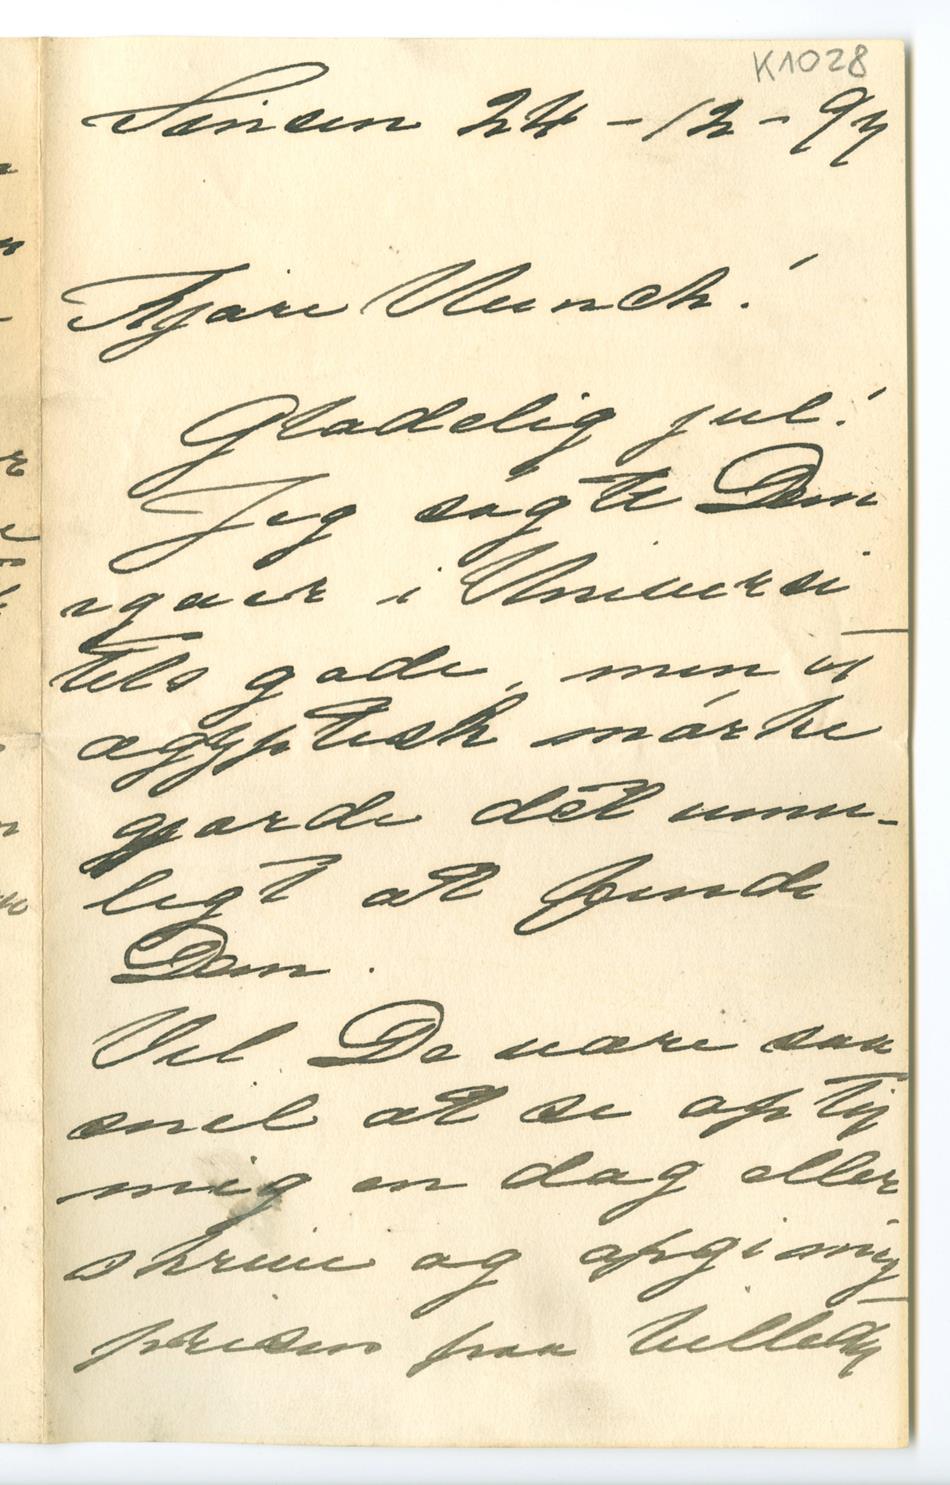 K1028
Sinsen 24-12-97
Kjære Munch!
Glædelig jul!
Jeg søgte Dem
igaar i Universi
tets gade, men et
ægyptisk mørke
gjorde det umu-
ligt at finde
Dem.
Vil De være saa
snil at se op til
mig en dag eller
skrive og opgi mig
prisen paa billedet